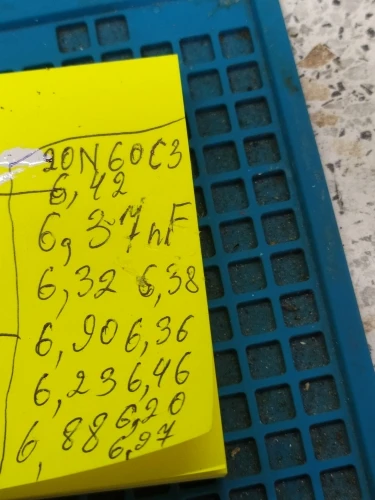 20N60C3
6,42
6,37nF
6,32 6,38
6,90 6,36
6,23 6,46
6,88 6,20
6,27